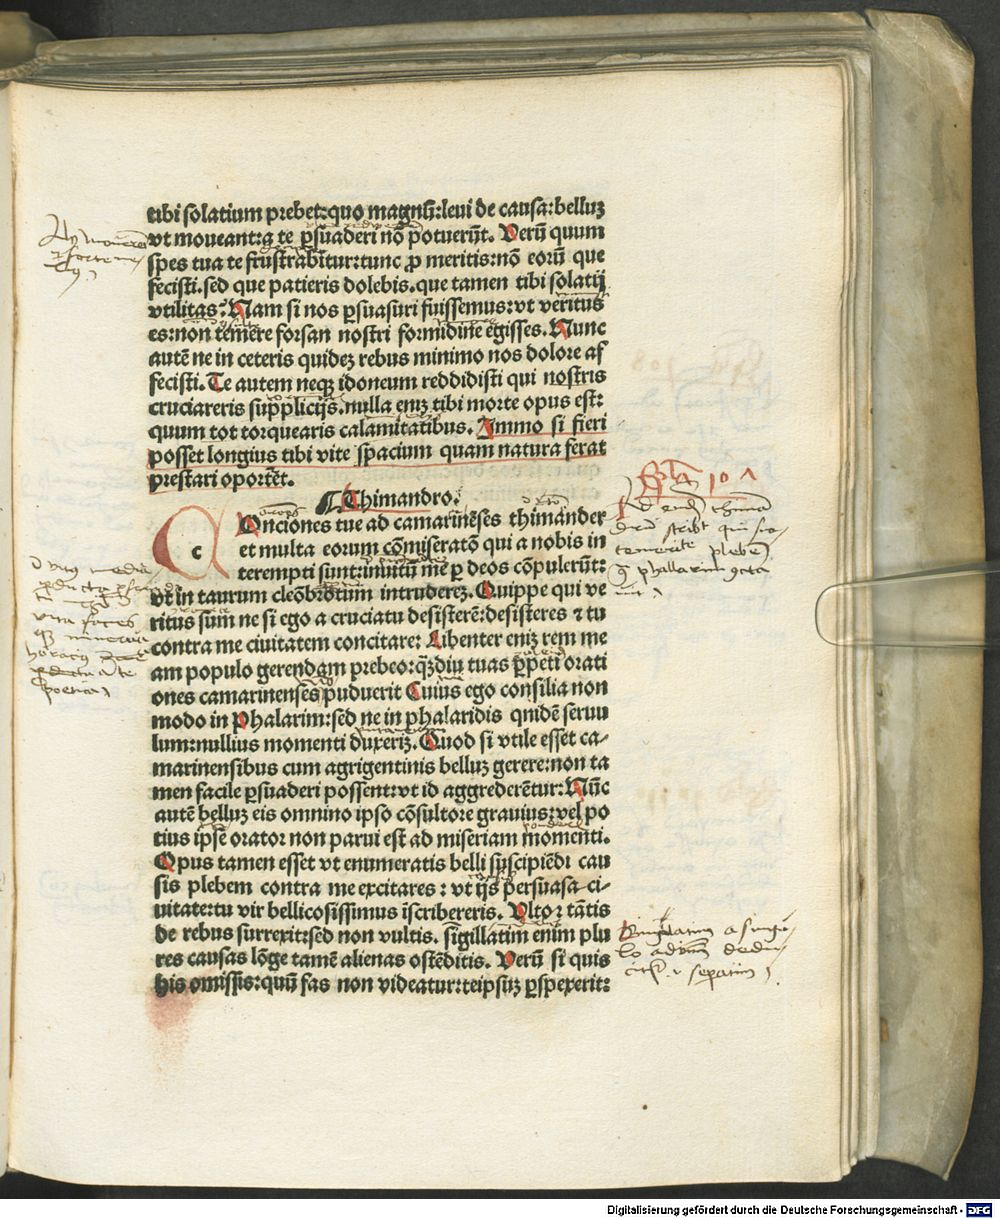 tibi solatium prebet:quo magnū:leui de causa:belluꝫ
vt moueant:q te ꝑsuaderi nō potuerūt. Verū quum
spes tua te frustrabitur:tunc ꝓ meritis:nō eorū que
fecisti.sed que patieris dolebis.que tamen tibi solatij
vtilitas? Nam si nos ꝑsuasuri fuissemus:vt veritus
es:non temere forsan nostri formidine egisses. Nunc
autē ne in ceteris quideꝫ rebus minimo nos dolore af
fecisti. Te autem neqꝫ idoneum reddidisti qui nostris
cruciareris supplicijs.nulla eniꝫ tibi morte opus est:
quum tot torquearis calamitatibus. Immo si fieri
posset longius tibi vite spacium quam natura ferat
prestari oportēt.
¶ Thimandro.
Epla 101
COnciones tue ad camarinēses thimander
et multa eorum cōmiseratō qui a nobis in
terempti sunt:inuitū me ꝑ deos cōpulerūt:
vt in taurum cleōbrotum intrudereꝫ. Quippe qui ve
ritus sum ne si ego a cruciatu desisterē:desisteres ⁊ tu
contra me ciuitatem concitare: Libenter eniꝫ rem me
am populo gerendam prebeo:qꝫdiu tuas ꝑpeti orati
ones camarinenses puduerit Cuius ego consilia non
modo in Phalarim:sed ne in phalaridis qnidē seruu
lum:nullius momenti duxeriꝫ. Quod si vtile esset ca-
marinensibus cum agrigentinis belluꝫ gerere:non ta
men facile ꝑsuaderi possent:vt id aggrederētur: Nūc
autē belluꝫ eis omnino ipso cōsultore grauius:vel po
tius ipse orator non parui est ad miseriam momenti.
Opus tamen esset vt enumeratis belli suscipiēdi cau
sis plebem contra me excitares : vt ijs persuasa ci-
uitate:tu vir bellicosissimus īscribereris. Vltoꝛ tātis
de rebus surrexit:sed non vultis. sigillatim enim plu
res causas lōge tamē alienas ostēditis. Verū si quis
his omissis:quū fas non videatur:teipsuꝫ ꝑspexerit:
Digitalisierung gefördert durch die Deutsche Forschungsgemeinschaft - DFG